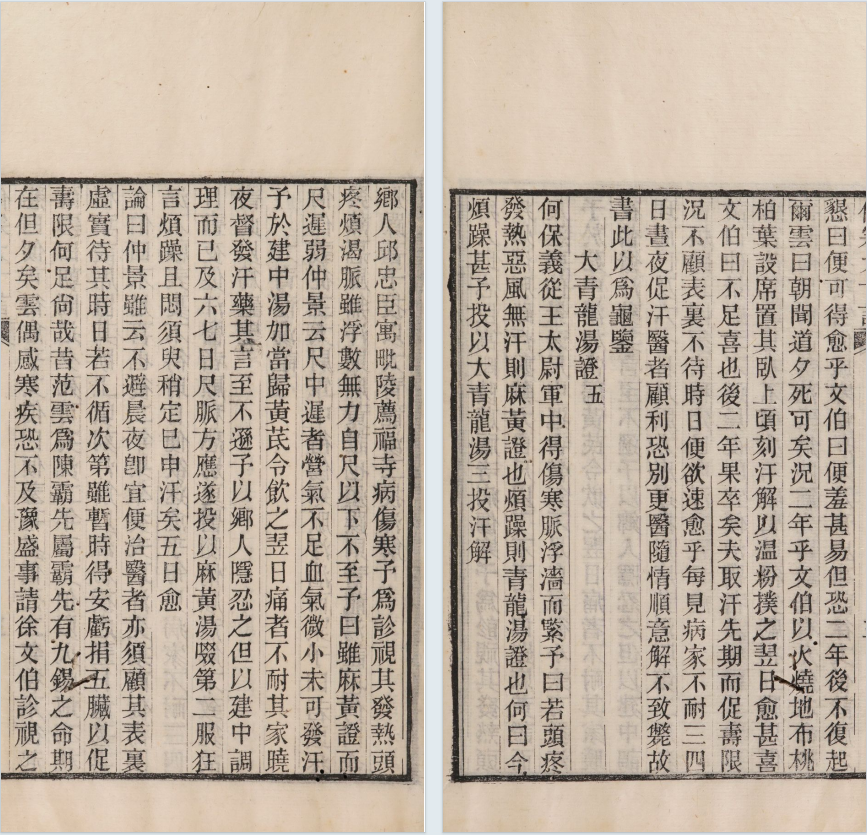 鄉人邱忠臣寓毗陵薦福寺病傷寒予爲診視其發熱頭
疼煩渴脈雖浮數無力自尺以下不至予曰雖麻黃證而
尺遲弱仲景云尺中遲者營氣不足血氣微小未可發汗
予於建中湯加當歸黃芪令飲之翌日痛者不耐其家曉
夜督發汗藥其言至不遜予以鄉人隱忍之但以建中調
理而已及六七日尺脈方應遂投以麻黃湯啜第二服狂
言煩躁且悶須臾稍定已申汗矣五日愈
論曰仲景雖云不避晨夜卽宜便治醫者亦須顧其表裏
虛實待其時日若不循次第雖暫時得安虧捐五臟以促
壽限何足尙哉昔范雲爲陳霸先屬霸先有九錫之命期
在但夕矣雲偶感寒疾恐不及豫盛事請徐文伯診視之
懇曰便可得愈乎文伯曰便羞甚易但恐二年後不復起
爾雲曰朝聞道夕死可矣況二年乎文伯以火燒地布桃
柏葉設席置其臥上頃刻汗解以温粉撲之翌日愈甚喜
文伯曰不足喜也後二年果卒矣夫取汗先期而促壽限
況不顧表裏不待時日便欲速愈乎每見病家不耐三四
日晝夜促汗醫者顧利恐別更醫隨情順意解不致斃故
書此以爲龜鑒
大青龍湯證五
何保義從王太尉軍中得傷寒脈浮濇而緊予曰若頭疼
發熱惡風無汗則麻黃證也煩躁則青龍湯證也何曰今
煩躁甚予投以大青龍湯三投汗解